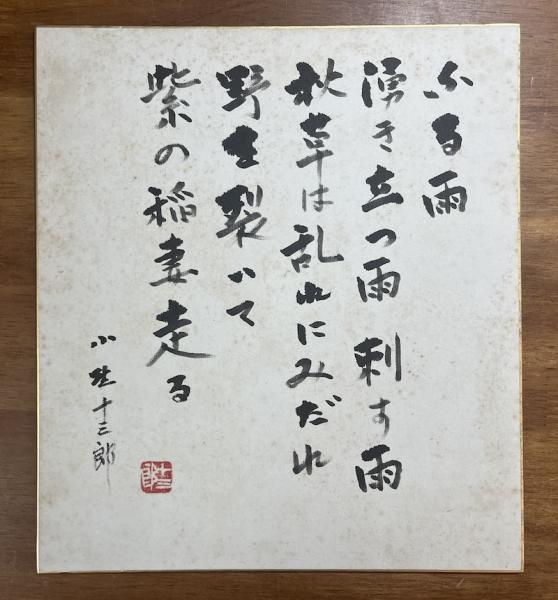 ふる雨
湧き立つ雨 刺す雨
秋草は乱れにみだれ
野を裂いて
紫の稲妻走る
小野十三郎
十三郎